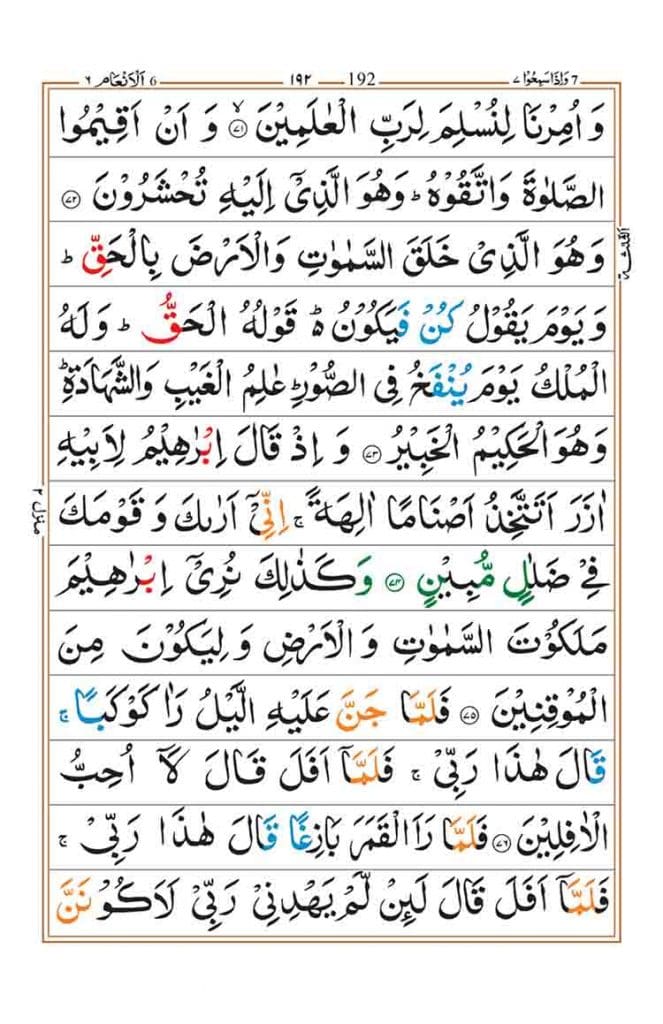 7 وَاِذَا سَمِعُوْا ٧ 192 ١٩٢ 6 اَلْاَنْعَام ٦
وَ اُمِرْنَا لِنُسْلِمَ لِرَبِّ الْعٰلَمِيْنَ ۙ‏﴿۷۱﴾ وَ اَنْ اَقِيْمُوا
الصَّلٰوةَ وَاتَّقُوْهُ ؕ وَهُوَ الَّذِىْۤ اِلَيْهِ تُحْشَرُوْنَ ﴿۷۲﴾
وَهُوَ الَّذِىْ خَلَقَ السَّمٰوٰتِ وَالْاَرْضَ بِالْحَقِّ ؕ
وَيَوْمَ يَقُوْلُ كُنْ فَيَكُوْنُ ؕ۬ قَوْلُهُ الْحَقُّ ؕ وَلَهُ
الْمُلْكُ يَوْمَ يُنْفَخُ فِى الصُّوْرِ ؕ عٰلِمُ الْغَيْبِ وَالشَّهَادَةِ ؕ
وَهُوَ الْحَكِيْمُ الْخَبِيْرُ ﴿۷۳﴾ وَ اِذْ قَالَ اِبْرٰهِيْمُ لِاَبِيْهِ
اٰزَرَ اَتَتَّخِذُ اَصْنَامًا اٰلِهَةً ۚ اِنِّىْۤ اَرٰٮكَ وَ قَوْمَكَ
فِىْ ضَلٰلٍ مُّبِيْنٍ ﴿۷۴﴾ وَكَذٰلِكَ نُرِىْۤ اِبْرٰهِيْمَ
مَلَكُوْتَ السَّمٰوٰتِ وَ الْاَرْضِ وَ لِيَكُوْنَ مِنَ
الْمُوْقِنِيْنَ ﴿۷۵﴾ فَلَمَّا جَنَّ عَلَيْهِ الَّيْلُ رَاٰ كَوْكَبًا ۚ
قَالَ هٰذَا رَبِّىْ ۚ فَلَمَّاۤ اَفَلَ قَالَ لَاۤ اُحِبُّ
الْاٰفِلِيْنَ ﴿۷۶﴾ فَلَمَّا رَاَ الْقَمَرَ بَازِغًا قَالَ هٰذَا رَبِّىْ ۚ
فَلَمَّاۤ اَفَلَ قَالَ لَئِنْ لَّمْ يَهْدِنِىْ رَبِّىْ لَاَكُوْنَنَّ
الثلٰثة
منزل ٢